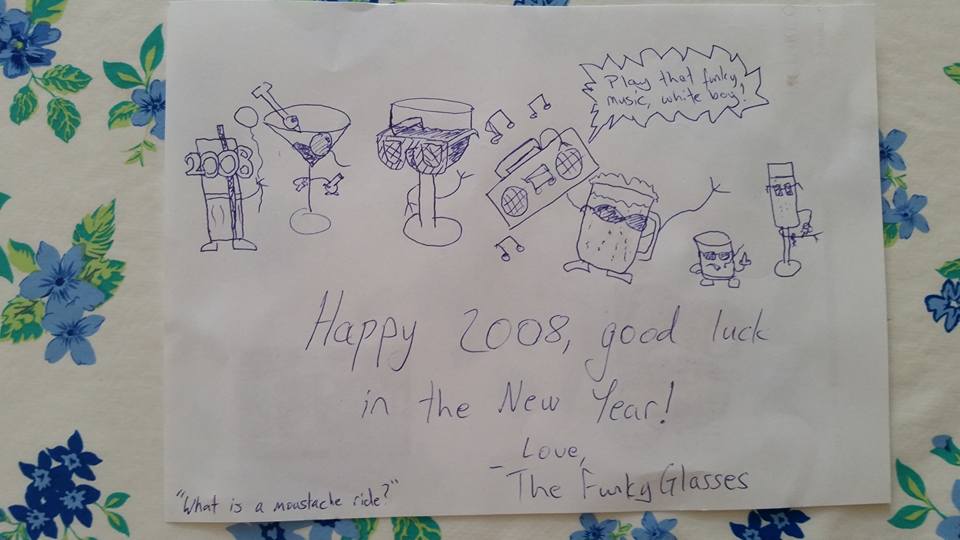 Play that funky
music, white boy!
2008
Happy 2008, good luck
in the New Year!
- Love,
The Funky Glasses
"What is a moustache ride?"